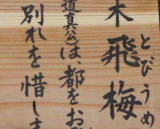 とびうめ
木飛梅
道真公は、都をお
別れを惜しま